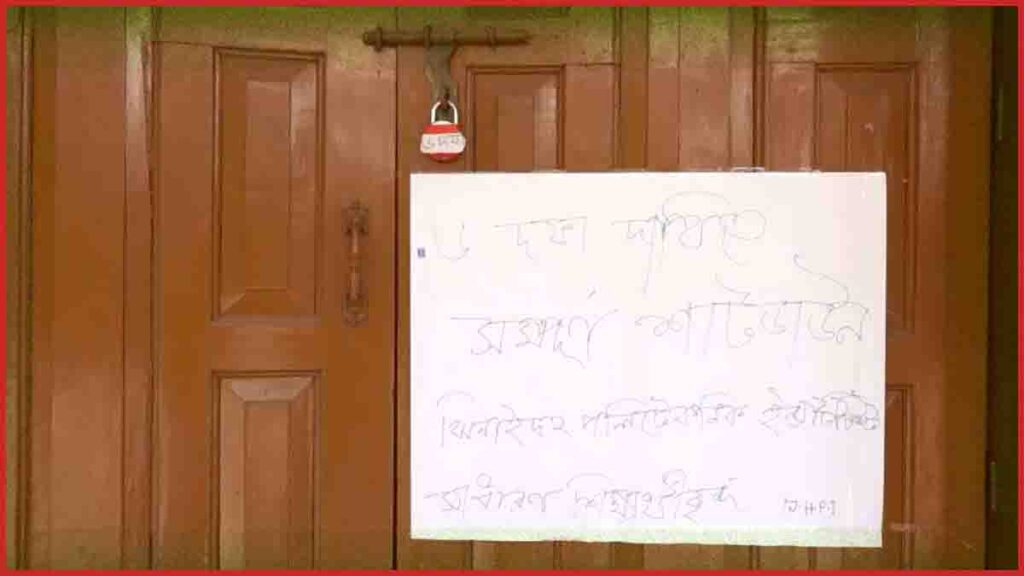 ৬ দফা দাবিতে
সম্পূর্ণ শাটডাউন
ঝিনাইদহ পলিটেকনিক ইন্সটিটিউট
সাধারণ শিক্ষার্থীবৃন্দ